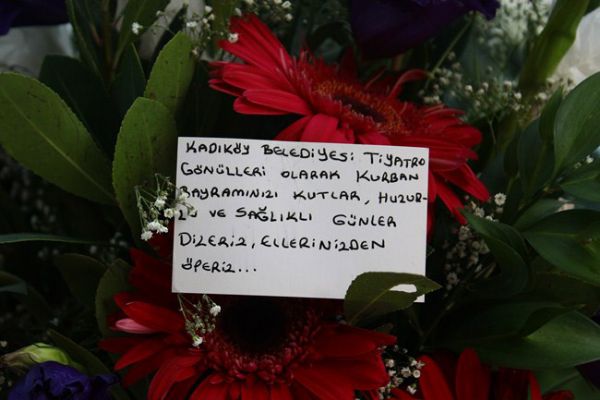 KADIKÖY BELEDİYESİ TİYATRO
GÖNÜLLERİ OLARAK KURBAN
BAYRAMINIZI KUTLAR, HUZUR-
LU VE SAĞLIKLI GÜNLER
DİLERİZ, ELLERİNİZDEN
ÖPERİZ...